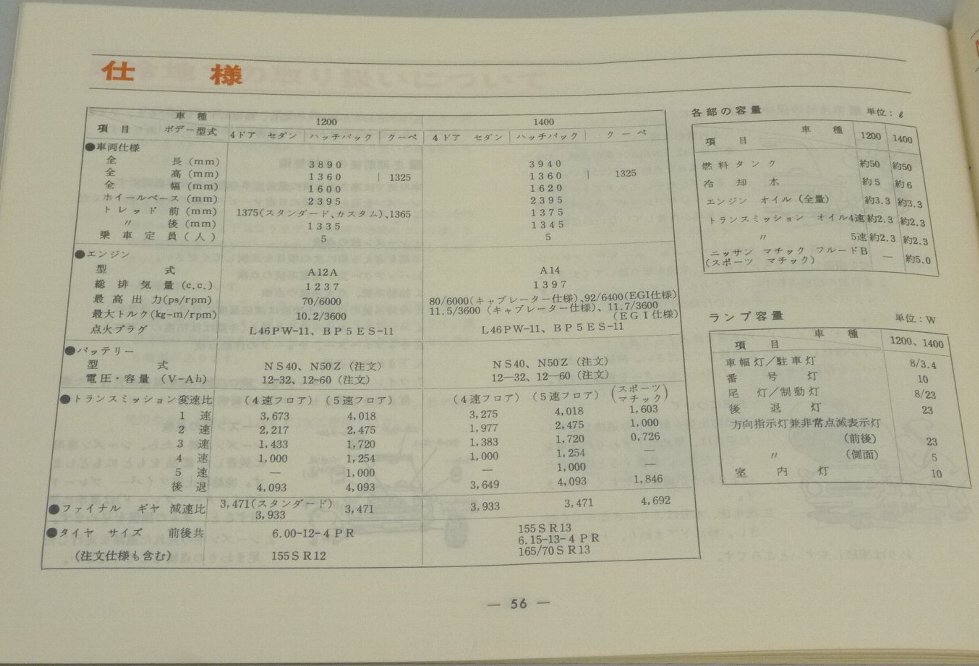 仕 様
車 種 1200 1400
項 目 ボデー型式 4ドア セダン ハッチバック クーペ 4ドア セダン ハッチバック クーペ
●車両仕様
全 長(mm) 3890 3940
全 高(mm) 1360 1325 1360 1325
全 幅(mm) 1600 1620
ホイールベース(mm) 2395 2395
トレッド 前(mm) 1375(スタンダード、カスタム)、1365 1375
〃 後(mm) 1335 1345
乗車定員(人) 5 5
●エンジン
型 式 A12A A14
総排気量(c.c.) 1237 1397
最高出力(ps/rpm) 70/6000 80/6000(キャブレーター仕様)、92/6400(EGI仕様)
最大トルク(kg-m/rpm) 10.2/3600 11.5/3600(キャブレーター仕様)、11.7/3600(EGI仕様)
点火プラグ L46PW-11、BP5ES-11 L46PW-11、BP5ES-11
●バッテリー
型 式 NS40、N50Z(注文) NS40、N50Z(注文)
電圧・容量(V-Ah) 12-32、12-60(注文) 12-32、12-60(注文)
●トランスミッション変速比 (4速フロア) (5速フロア) (4速フロア) (5速フロア) (スポーツマチック)
1 速 3,673 4,018 3,275 4,018 1,603
2 速 2,217 2,475 1,977 2,475 1,000
3 速 1,433 1,720 1,383 1,720 0,726
4 速 1,000 1,254 1,000 1,254 —
5 速 — 1,000 — 1,000 —
後 退 4,093 4,093 3,649 4,093 1,846
●ファイナル ギヤ 減速比 3,471(スタンダード) 3,933 3,471 3,933 3,471 4,692
●タイヤ サイズ 前後共 6.00-12-4PR 155SR13
6.15-13-4PR
(注文仕様も含む) 155SR12 165/70SR13
各部の容量 単位:ℓ
項 目 車 種 1200 1400
燃料タンク 約50 約50
冷却水 約5 約6
エンジン オイル(全量) 約3.3 約3.3
トランスミッション オイル4速 約2.3 約2.3
〃 5速 約2.3 約2.3
ニッサン マチック フルードB
(スポーツ マチック) — 約5.0
ランプ容量 単位:W
項 目 車 種 1200、1400
車幅灯/駐車灯 8/3.4
番 号 灯 10
尾 灯/制動灯 8/23
後 退 灯 23
方向指示灯兼非常点滅表示灯
(前後) 23
〃 (側面) 5
室 内 灯 10
— 56 —